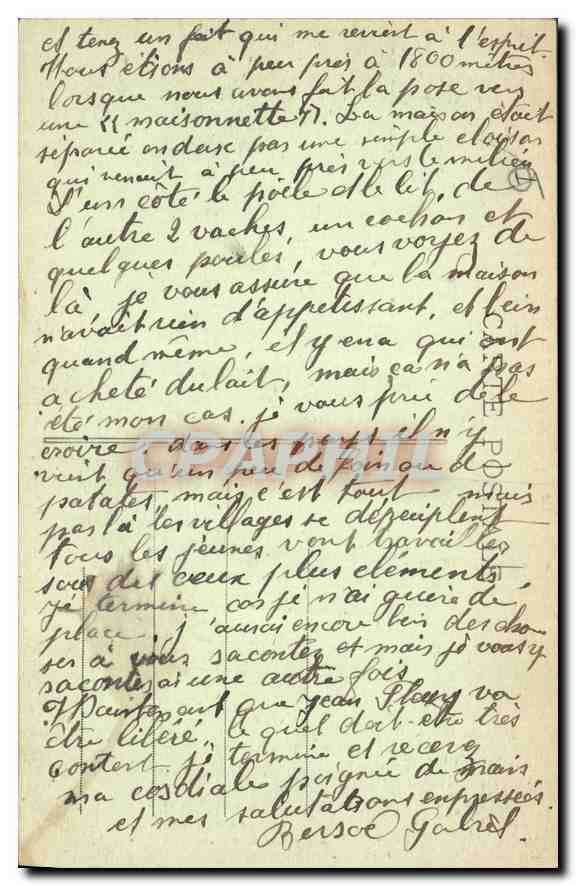 et tenez un fait qui me revient à l'esprit.
Nous étions à peu près à 1800 mètres
lorsque nous avons fait la pose vers
une "maisonnette". La maison était
séparée en deux par une simple cloison
qui venait à peu près vers le milieu
D'un côté le poële et le lit, de
l'autre 2 vaches, un cochon et
quelques poules, vous voyez de
là je vous assure que la maison
n'avait rien d'appétissant, et bien
quand même, il y en a qui ont
acheté du lait, mais ça n'a pas
été mon cas. je vous prie de le
croire. dans les pays il n'y
vient qu'un peu de foin ou de
patates, mais c'est tout mais
par là les villages se dépeuplent
Tous les jeunes vont travailler
sous des cieux plus cléments,
je termine car je n'ai guère de
place. J'aurai encore bien des cho
ses à vous raconter et mais je vous y
raconterai une autre fois
Maintenant que Jean Flany va
être libéré, le quel doit être très
content. je termine et recevez
ma cordiale poignée de mains
et mes salutations empressées.
Gabriel.
CARTE POSTALE
CPARPHIL